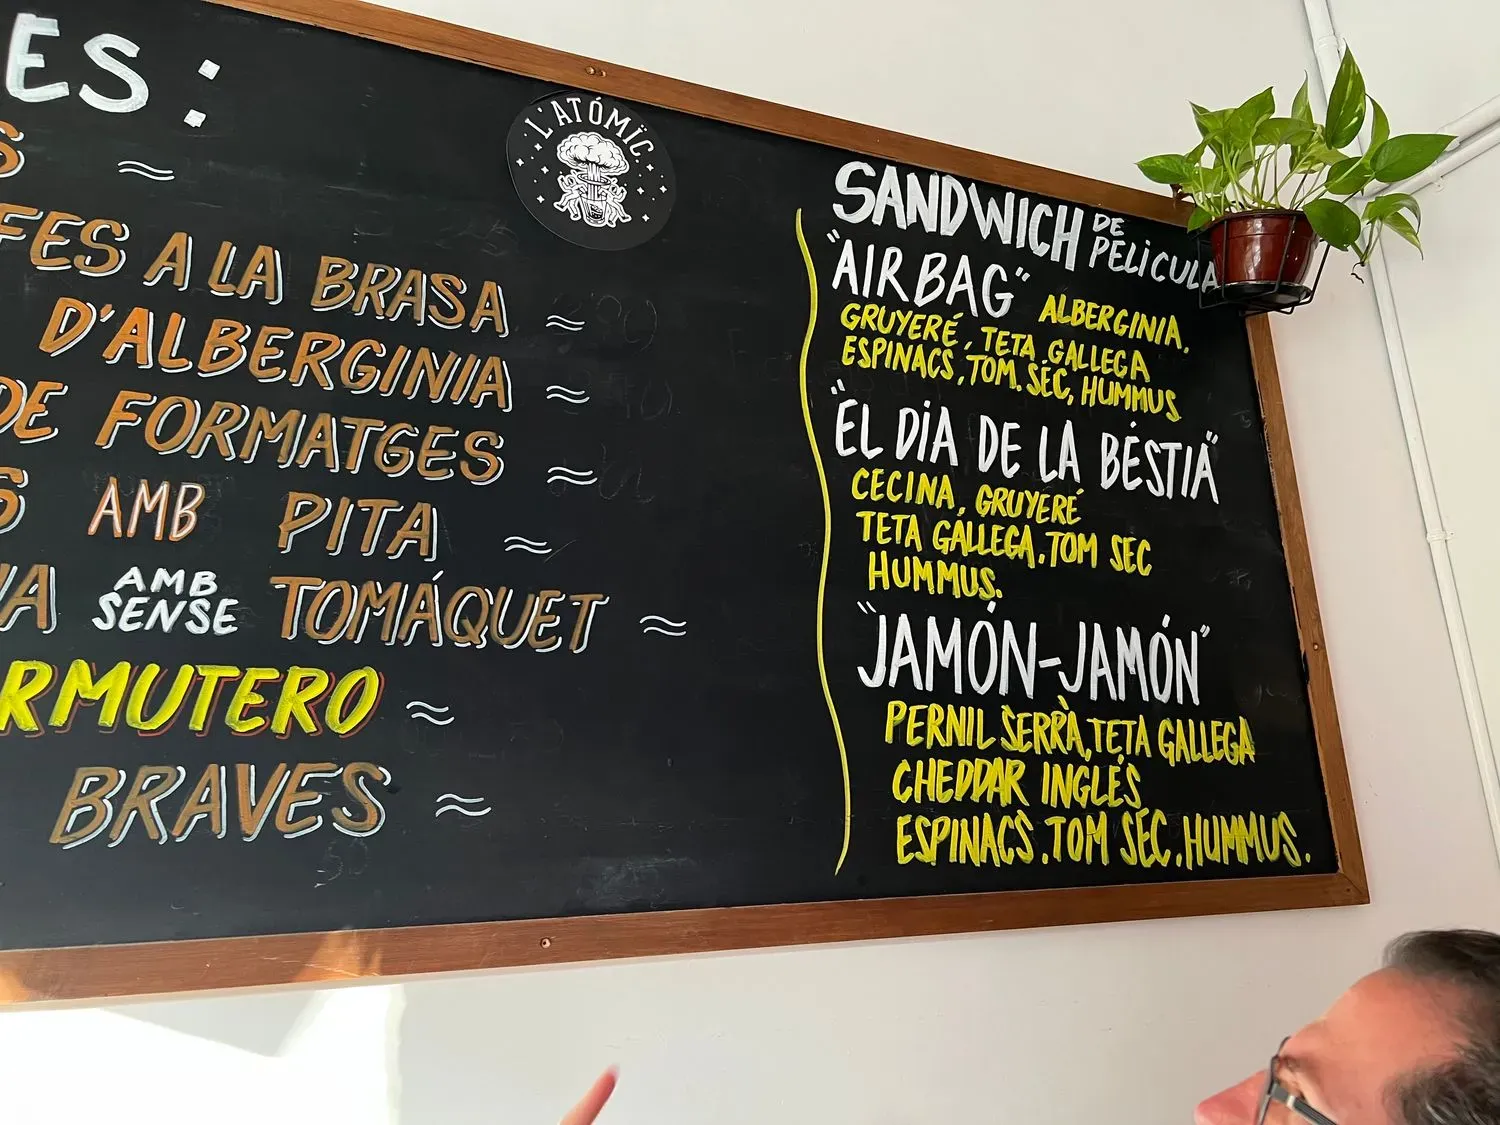 ES:
S ≈
FES A LA BRASA ≈
D'ALBERGINIA ≈
DE FORMATGES ≈
S AMB PITA ≈
NA AMB SENSE TOMÁQUET ≈
RMUTERO ≈
BRAVES ≈
L'ATÓMÏC
SANDWICH DE PELíCULA
"AIRBAG" ALBERGINIA,
GRUYERÉ, TETA GALLEGA
ESPINACS, TOM. SEC, HUMMUS
"EL DíA DE LA BÉSTIA"
CECINA, GRUYERÉ
TETA GALLEGA. TOM SEC
HUMMUS.
"JAMÓN-JAMÓN"
PERNIL SERRÀ, TETA GALLEGA
CHEDDAR INGLÉS
ESPINACS. TOM SEC. HUMMUS.